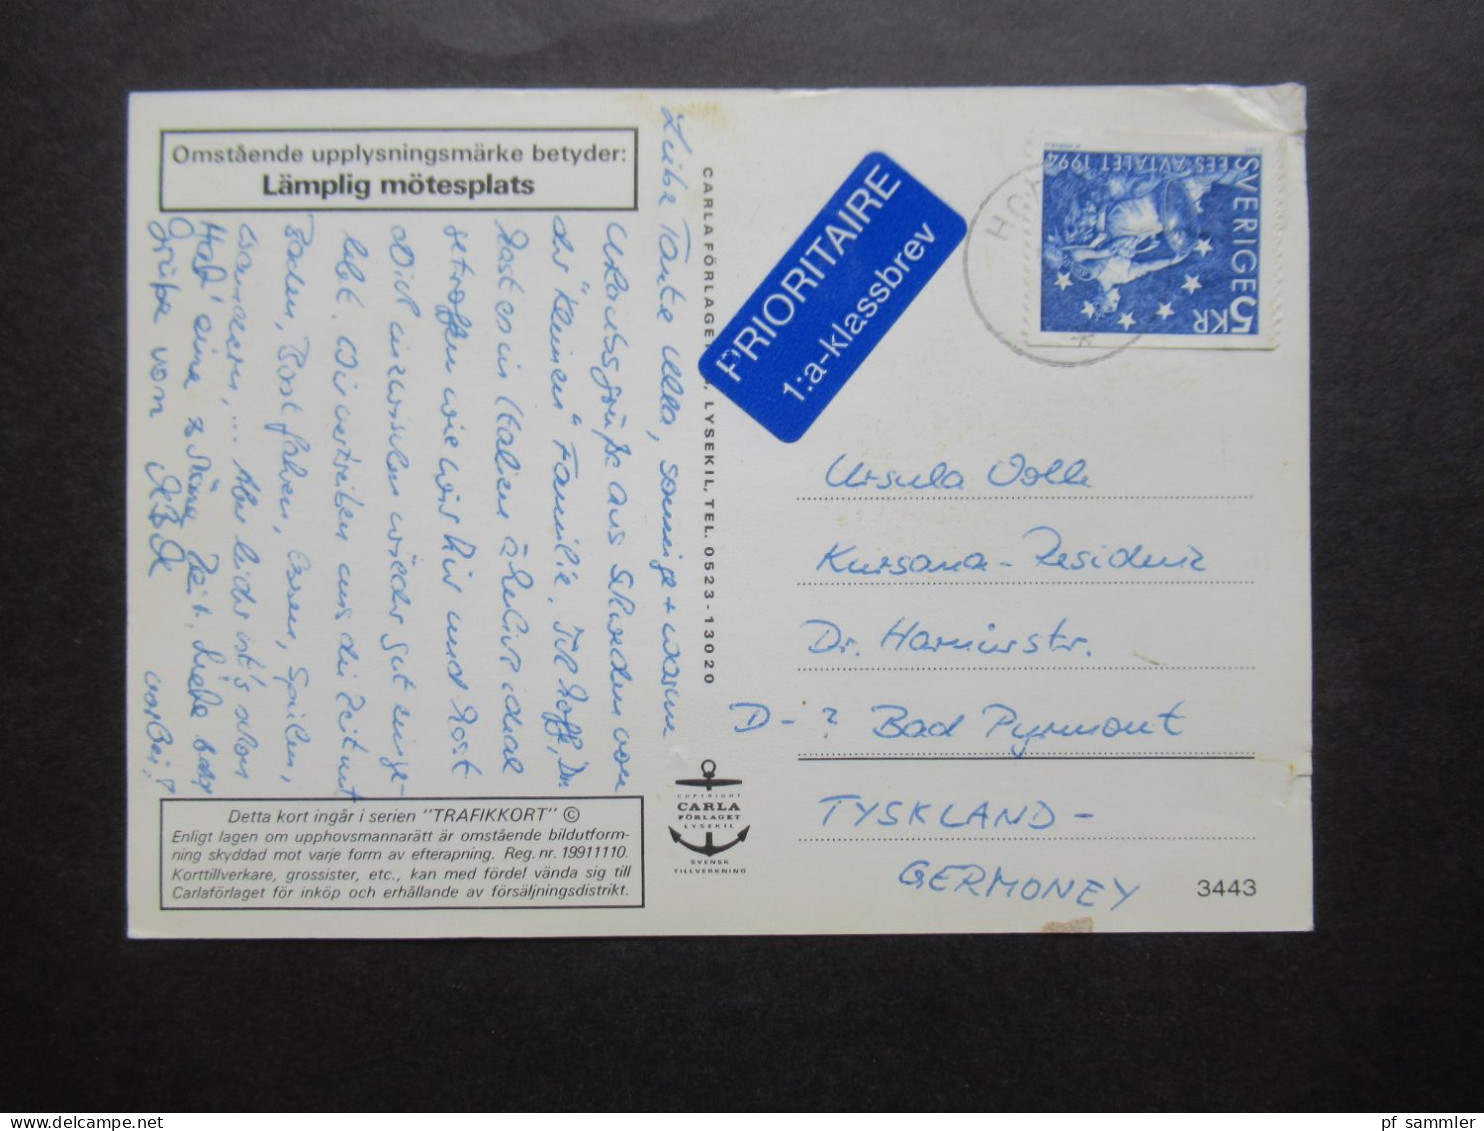 Omstående upplysningsmärke betyder:
Lämplig mötesplats
Liebe Tante Ulla, sonnige + warme
Urlaubsgrüße aus Schweden von
der "kleinen" Familie. Ich hoffe, Du
hast es in Italien ähnlich ideal
getroffen wie wir hier und hast
Dich inzwischen wieder gut einge-
lebt. Wir vertreiben uns die Zeit mit
Baden, Boot fahren, Essen, Spielen,
wandern, ... Aber leider ist's schon
vorbei!
Hab' eine schöne Zeit. Liebe
Grüße von
Detta kort ingår i serien "TRAFIKKORT" ©
Enligt lagen om upphovsmannarätt är omstående bildutform-
ning skyddad mot varje form av efterapning. Reg. nr. 19911110.
Korttillverkare, grossister, etc., kan med fördel vända sig till
Carlaförlaget för inköp och erhållande av försäljningsdistrikt.
CARLA FÖRLAGET, LYSEKIL, TEL. 0523-13020
COPYRIGHT
CARLA
FÖRLAGET
LYSEKIL
SVENSK
TILLVERKNING
PRIORITAIRE
1:a-klassbrev
SVERIGE 5 KR
EES-AVTALET 1994
Ursula
Kursana-Residenz
Dr. Harnierstr.
D - ? Bad Pyrmont
TYSKLAND -
GERMONEY
3443
pf sammler